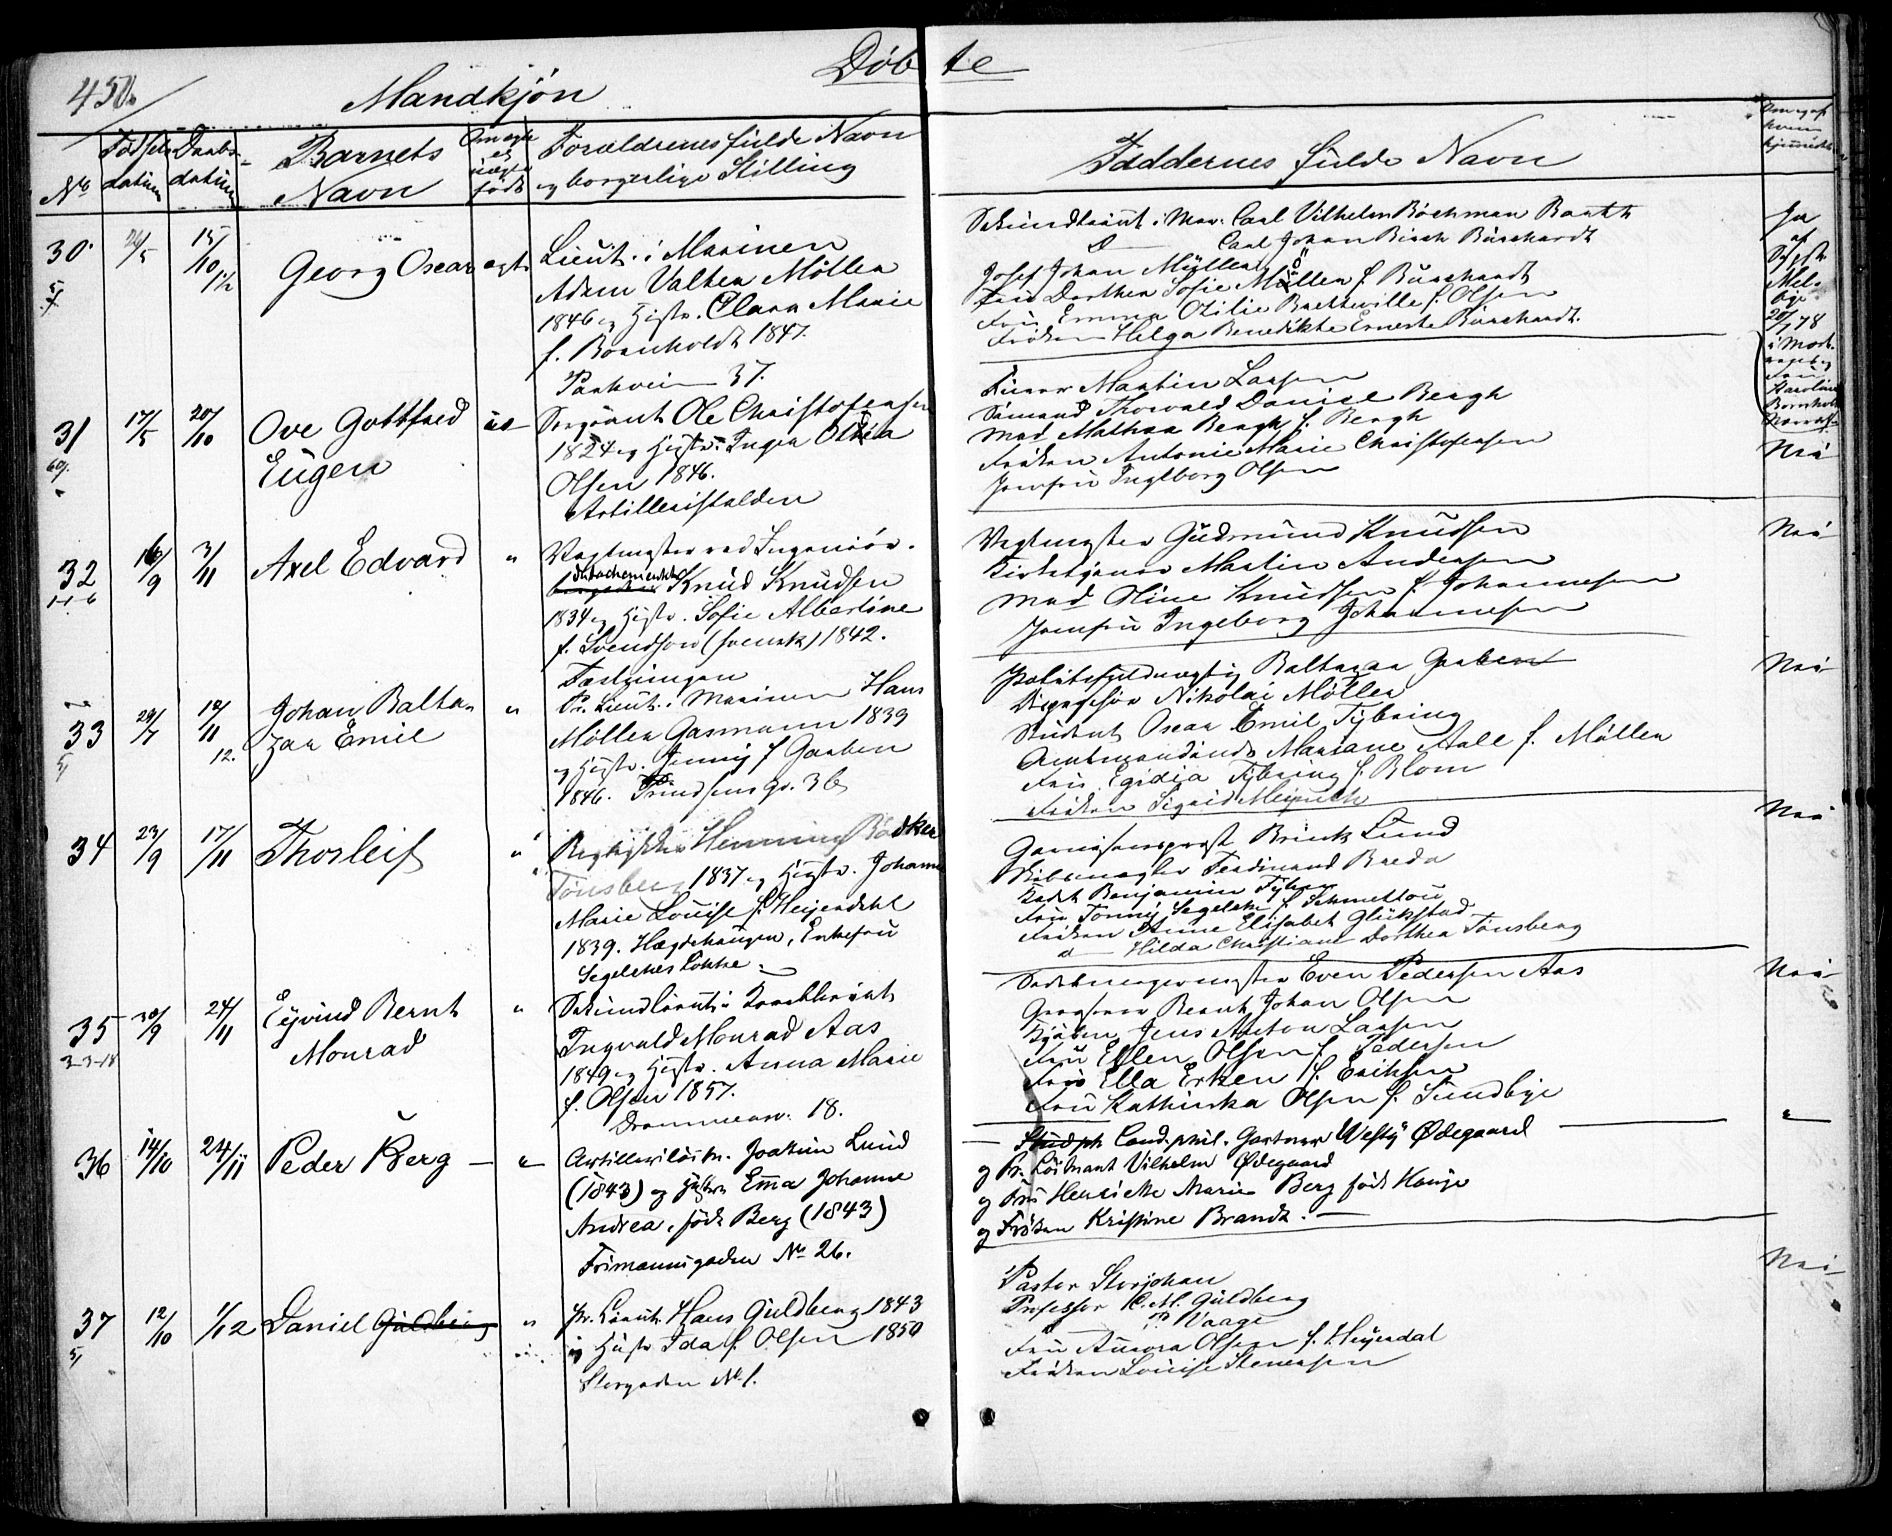 450.
Døbte
Mandkjøn
No
Fødsels datum
Daabs- datum
Barnets Navn
Om ægte el. uægte født
Forældrenes fulde Navn og borgerlige Stilling
Faddernes fulde Navn
30.
24/5
15/10
Georg Oscar
ægte
Lieut. i Marinen
Adam Valter Møller
1846 og Hustr. Clara Marie
f. Bornholdt 1847.
Parkveien 37.
Sekundlieut. i Mar. Carl Vilhelm Bockman Barth
D— Carl Johan Birch Burchardt
Josef Johan Müller
Fru Dorthea Sofie Müller f. Burchardt
Fru Emma Otilie Bretteville f. Olsen
Frøken Helga Benedikte Erneste Burchardt.
Ja
af
20/1 78
31
17/5
20/10
Ove Gottfred
Eugen
Sergeant Ole Christofersen
1824 og Hustr. Inger
Olsen 1846.
Artilleristalden
Martin Larsen
Sømand Thorvald Daniel Bergh
Mad Mathea Bergh f. Bergh
Frøken Antonie Marie Christofersen
Jomfru Ingeborg Olsen
Nei
32
1-1-6
16/9
3/11
Axel Edvard
"
Vagtmester ved Ingeniør.
detachementet Knud Knudsen
1834 og Hustr. Sofie Albertine
f. Svendsen (svensk) 1842.
Fæstningen
Vagtmester Gudmund Knudsen
Kirketjener Martin Andersen
Mad Oline Knudsen f. Johannesen
Jomfru Ingeborg Johannesen
Nei
33
29/7
12/11
12.
Johan Balta-
zar Emil
"
Pr. Lieut. i Marinen Hans
Møller Gasmann 1839
og Hustr. Jenny f Garben
1846. 36
Politifuldmægtig Baltazar Garben
Dispachør Nikolai Møller
Student Oscar Emil Tybring
Amtmandinde Mariane Aall f. Møller
Fru Egidia Tybring f. Blom
Frøken Sigrid
Nei
34
23/9
17/11
Thorleif
"
Henning Bödker
Tönsberg 1837 og Hustr. Johanne
Marie Louise f. Heyerdahl
1839. Hægdehaugen, Enkefru
Segelckes Løkke.
Garnisonsprest Brinck Lund
Ferdinand Breda
Kadet Benjamin
Fru Fanny Segelcke f. Schmettow
Frøken Anne Elisabet Glückstad
d Hilda Christiane Dorthea Tønsberg
Nei
35
3-3-18
30/9
24/11
Eyvind Bernt
Monrad
"
Sekundlieut. i
Ingvald Monrad Aas
1849 og Hustr. Anna Marie
f. Olsen 1857.
Drammensv. 18.
Even Pedersen Aas
Grosserer Bernt Johan Olsen
Jens Anton Larsen
Fru Ellen Olsen f. Pedersen
Fru Ella Erken f. Eriksen
Fru Kathinka Olsen f. Sundbye
Nei
36
14/10
24/11
Peder Berg
"
Artillerilöitn. Joakim Lund
(1843) og Hustru Emma Johanne
Andrea, född Berg (1843)
Frimannsgaden No 26.
Stud ph Cand. phil. Gartner Westy Ødegaard
og Pr. Löitnant Vilhelm Ødegaard
og Fru Henriette Marie Berg född Hauge
og Frøken Kristine Brandt.
"
37
5)
12/10
1/12
Daniel Guldberg
"
Pr. Lieut. Hans Guldberg 1843
og Hustr Ida f. Olsen 1850
Storgaden No 1.
Pastor Storjohan
Professor C. M. Guldberg
" P. Waage
Fru Aurora Olsen f. Heyerdal
Frøken Louise Stenersen
Nei